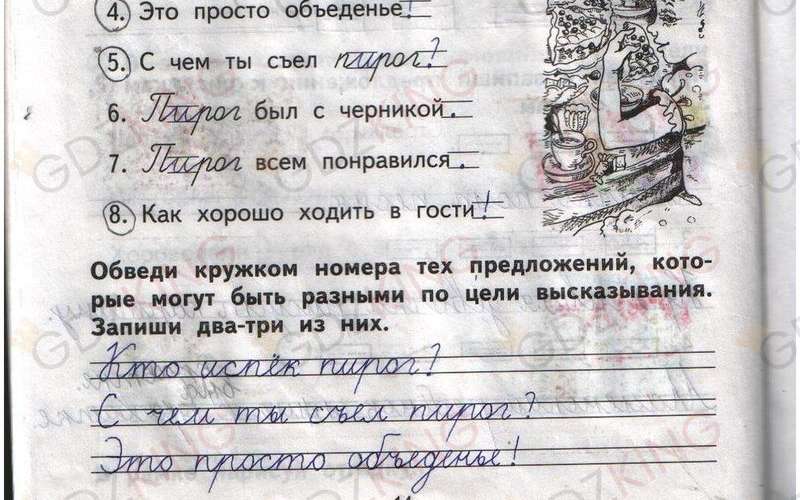 4. Это просто объеденье!
5. С чем ты съел пирог?
6. Пирог был с черникой.
7. Пирог всем понравился.
8. Как хорошо ходить в гости!
Обведи кружком номера тех предложений, кото-
рые могут быть разными по цели высказывания.
Запиши два-три из них.
Кто испёк пирог?
С чем ты съел пирог?
Это просто объеденье!